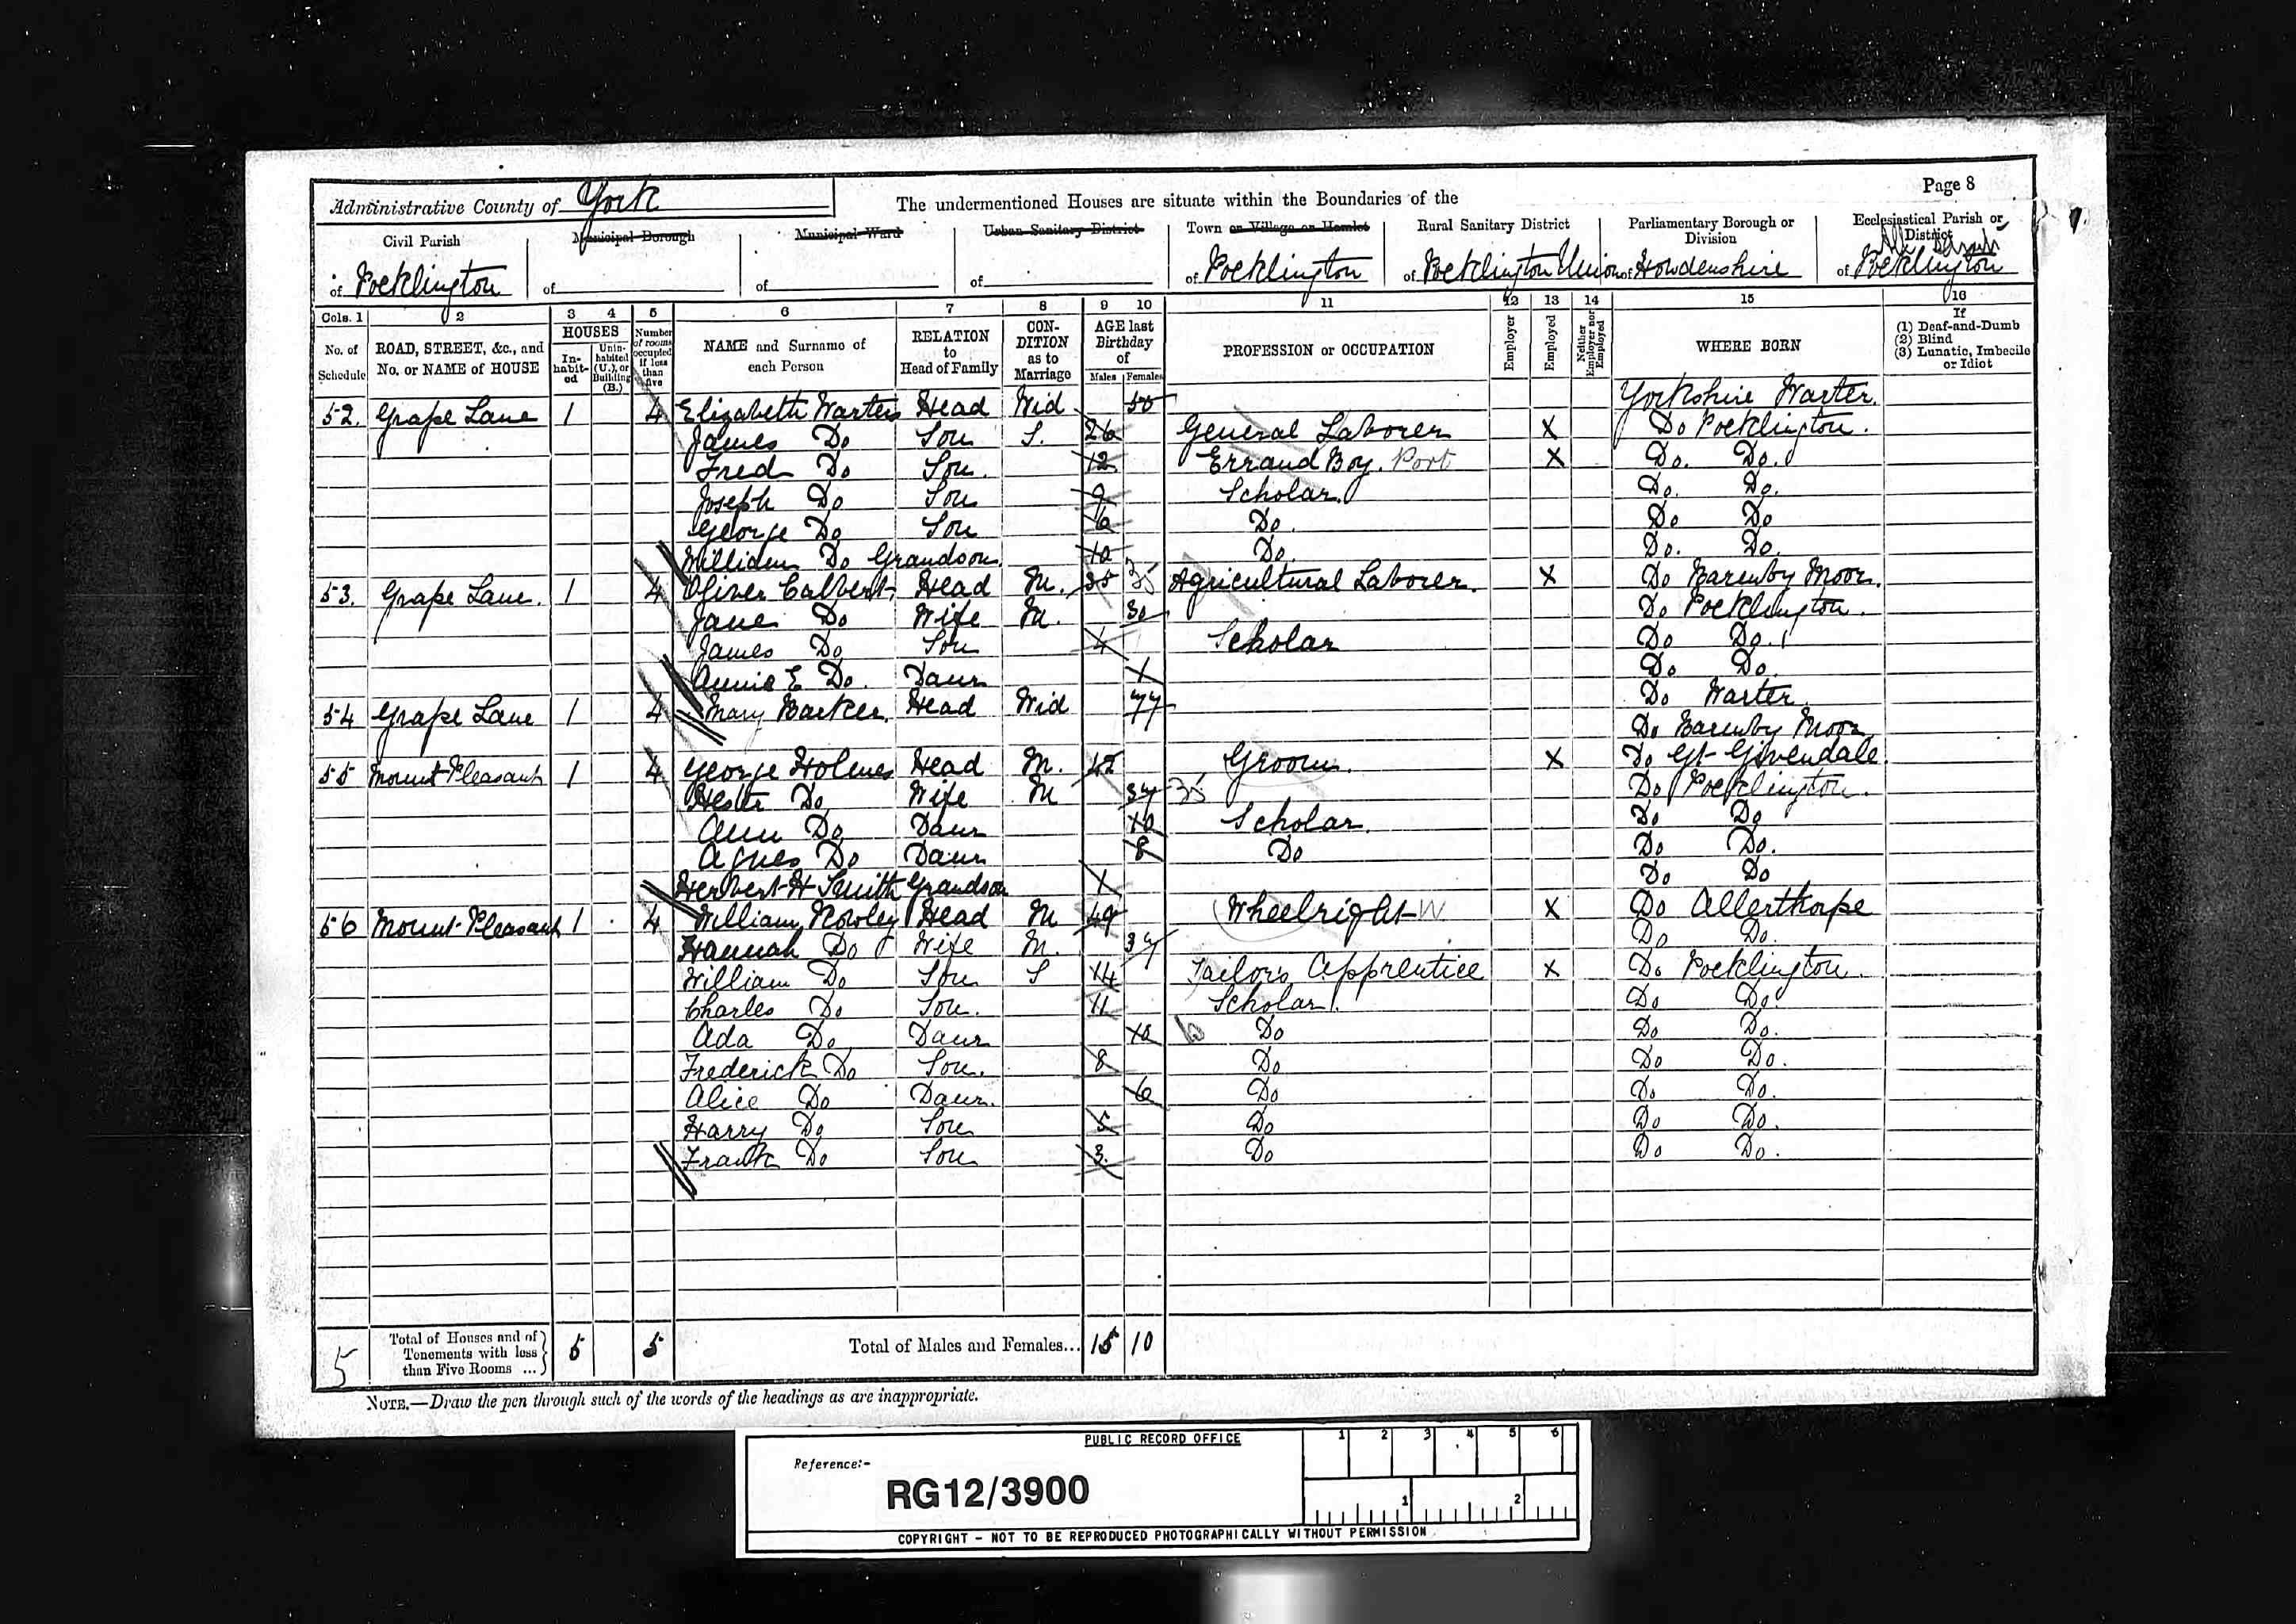 Page 8
Administrative County of York
The undermentioned Houses are situate within the Boundaries of the
Civil Parish of Pocklington
Municipal Borough of
Municipal Ward of
Urban Sanitary District of
Town or Village or Hamlet of Pocklington
Rural Sanitary District of Pocklington Union
Parliamentary Borough or Division of Howdenshire
Ecclesiastical Parish or District of Pocklington
Cols. 1 2 3 4 5 6 7 8 9 10 11 12 13 14 15 16
No. of Schedule
ROAD, STREET, &c., and No. or NAME of HOUSE
HOUSES
In-habit-ed
Unin-habited (U.), or Building (B.)
Number of rooms occupied if less than five
NAME and Surname of each Person
RELATION to Head of Family
CON-DITION as to Marriage
AGE last Birthday of
Males Females
PROFESSION or OCCUPATION
Employer
Employed
Neither Employer nor Employed
WHERE BORN
If (1) Deaf-and-Dumb (2) Blind (3) Lunatic, Imbecile or Idiot
52. Grape Lane 1 4 Elizabeth Warters Head Wid 50 Yorkshire Warter.
James Do Son S. 26 General Laborer X Do Pocklington.
Fred Do Son. 12 Errand Boy. Port X Do. Do.
Joseph Do Son 9 Scholar. Do. Do.
George Do Son 6 Do. Do Do
William Do Grandson 10 Do. Do. Do.
53. Grape Lane. 1 4 Oliver Calvert Head M. 35 35 Agricultural Laborer. X Do Barmby Moor.
Jane Do Wife M. 30 Do Pocklington.
James Do Son 4 Scholar Do Do.
Annie E Do. Daur 1 Do Do.
54 Grape Lane 1 4 Mary Barker. Head Wid 77 Do Warter.
Do Barmby Moor
55 Mount Pleasant 1 4 George Holmes Head M. 42 Groom. X Do Gt Givendale.
Do Wife M 37 35 Do Pocklington.
Ann Do Daur 10 Scholar. Do Do
Agnes Do Daur 8 Do Do Do.
Herbert H Smith Grandson 1 Do Do
56 Mount Pleasant 1 4 William Rowley Head M 49 Wheelright W X Do Allerthorpe
Hannah Do Wife M. 37 Do Do.
William Do Son S 14 Tailors Apprentice X Do Pocklington.
Charles Do Son. 11 Scholar. Do Do.
Ada Do Daur 10 Do Do Do.
Frederick Do Son. 8 Do Do Do.
Alice Do Daur. 6 Do Do Do.
Harry Do Son 5 Do Do Do.
Frank Do Son 3. Do Do Do.
5 Total of Houses and of Tenements with less than Five Rooms ... 5 5 Total of Males and Females... 15 10
NOTE.—Draw the pen through such of the words of the headings as are inappropriate.
PUBLIC RECORD OFFICE
1 2 3 4 5 6
Reference:-
RG12/3900
1 2
COPYRIGHT - NOT TO BE REPRODUCED PHOTOGRAPHICALLY WITHOUT PERMISSION